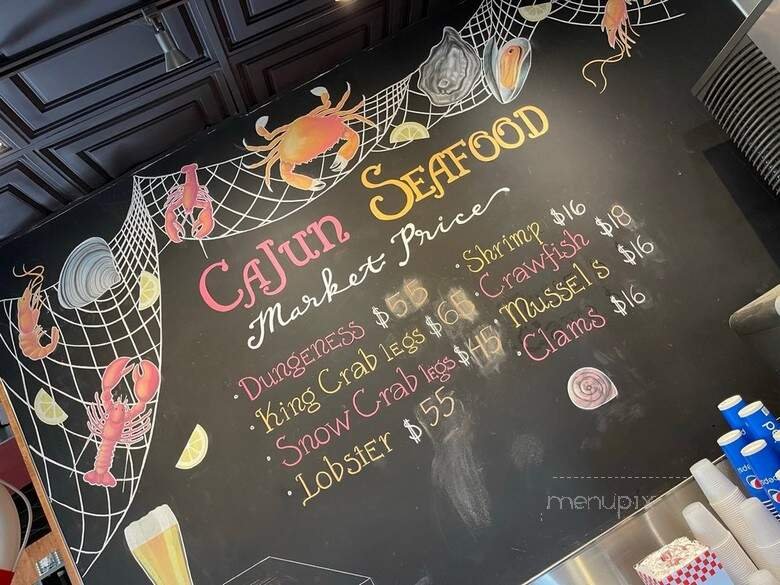 CAJUN SEAFOOD
Market Price
· DUNGENESS $55
· King Crab LEGS $65
· Snow Crab LEGS $45
· Lobster $55
· Shrimp $16
· Crawfish $18
· Mussels $16
· Clams $16
menupix
pepsi